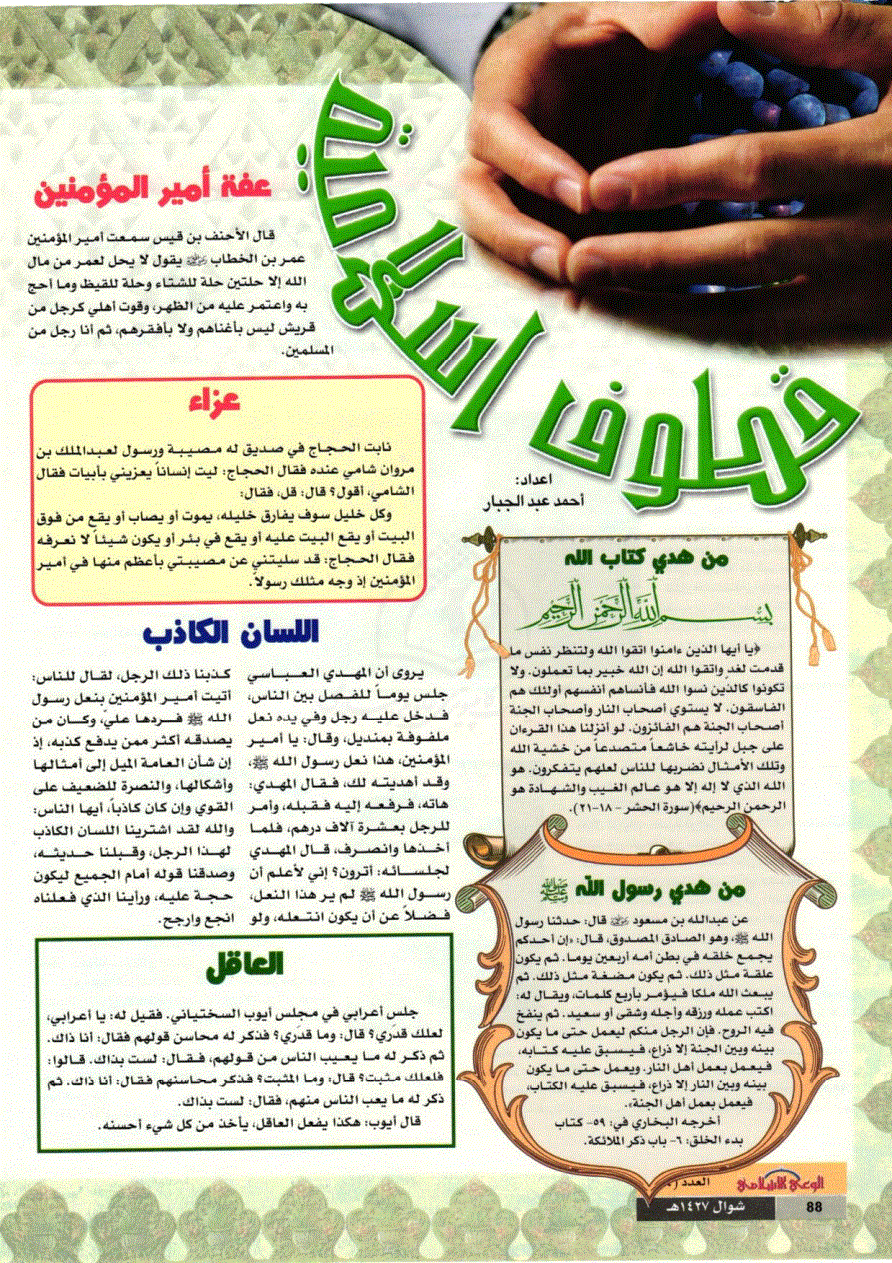 قطوف إسلامية
اعداد:
أحمد عبد الجبار
من هدي كتاب الله
بسم الله الرحمن الرحيم
﴿يا أيها الذين ءامنوا اتقوا الله ولتنظر نفس ما
قدمت لغد واتقوا الله إن الله خبير بما تعملون. ولا
تكونوا كالذين نسوا الله فأنساهم أنفسهم أولئك هم
الفاسقون. لا يستوي أصحاب النار وأصحاب الجنة
أصحاب الجنة هم الفائزون. لو أنزلنا هذا القرءان
على جبل لرأيته خاشعاً متصدعاً من خشية الله
وتلك الأمثال نضربها للناس لعلهم يتفكرون. هو
الله الذي لا إله إلا هو عالم الغيب والشهادة هو
الرحمن الرحيم﴾(سورة الحشر - ١٨-٢١).
من هدي رسول الله ﷺ
عن عبدالله بن مسعود رضي الله عنه قال: حدثنا رسول
الله ﷺ، وهو الصادق المصدوق، قال: «إن أحدكم
يجمع خلقه في بطن أمه أربعين يوما. ثم يكون
علقة مثل ذلك. ثم يكون مضغة مثل ذلك. ثم
يبعث الله ملكا فيؤمر بأربع كلمات، ويقال له:
اكتب عمله ورزقه وأجله وشقى أو سعيد. ثم ينفخ
فيه الروح. فإن الرجل منكم ليعمل حتى ما يكون
بينه وبين الجنة إلا ذراع، فيسبق عليه كتابه،
فيعمل بعمل أهل النار. ويعمل حتى ما يكون
بينه وبين النار إلا ذراع، فيسبق عليه الكتاب،
فيعمل بعمل أهل الجنة».
أخرجه البخاري في: ٥٩- كتاب
بدء الخلق: ٦- باب ذكر الملائكة.
عفة أمير المؤمنين
قال الأحنف بن قيس سمعت أمير المؤمنين
عمر بن الخطاب رضي الله عنه يقول لا يحل لعمر من مال
الله إلا حلتين حلة للشتاء وحلة للقيظ وما أحج
به واعتمر عليه من الظهر، وقوت أهلي كرجل من
قريش ليس بأغناهم ولا بأفقرهم، ثم أنا رجل من
المسلمين.
عزاء
نابت الحجاج في صديق له مصيبة ورسول لعبدالملك بن
مروان شامي عنده فقال الحجاج: ليت إنساناً يعزيني بأبيات فقال
الشامي، أقول؟ قال: قل، فقال:
وكل خليل سوف يفارق خليله، يموت أو يصاب أو يقع من فوق
البيت أو يقع البيت عليه أو يقع في بئر أو يكون شيئاً لا نعرفه
فقال الحجاج: قد سليتني عن مصيبتي بأعظم منها في أمير
المؤمنين إذ وجه مثلك رسولاً.
اللسان الكاذب
يروى أن المهدي العباسي
جلس يوماً للفصل بين الناس،
فدخل عليه رجل وفي يده نعل
ملفوفة بمنديل، وقال: يا أمير
المؤمنين، هذا نعل رسول الله ﷺ،
وقد أهديته لك، فقال المهدي:
هاته، فرفعه إليه فقبله، وأمر
للرجل بعشرة آلاف درهم، فلما
أخذها وانصرف، قال المهدي
لجلسائه: أترون؟ إني لأعلم أن
رسول الله ﷺ لم ير هذا النعل،
فضلاً عن أن يكون انتعله، ولو
كذبنا ذلك الرجل، لقال للناس:
أتيت أمير المؤمنين بنعل رسول
الله ﷺ فردها عليّ، وكان من
يصدقه أكثر ممن يدفع كذبه، إذ
إن شأن العامة الميل إلى أمثالها
وأشكالها، والنصرة للضعيف على
القوي وإن كان كاذباً، أيها الناس:
والله لقد اشترينا اللسان الكاذب
لهذا الرجل، وقبلنا حديثه،
وصدقنا قوله أمام الجميع ليكون
حجة عليه، ورأينا الذي فعلناه
انجع وارجح.
العاقل
جلس أعرابي في مجلس أيوب السختياني. فقيل له: يا أعرابي،
لعلك قدَري؟ قال: وما قدَري؟ فذكر له محاسن قولهم فقال: أنا ذاك.
ثم ذكر له ما يعيب الناس من قولهم، فقال: لست بذاك. قالوا:
فلعلك مثبت؟ قال: وما المثبت؟ فذكر محاسنهم فقال: أنا ذاك. ثم
ذكر له ما يعب الناس منهم، فقال: لست بذاك.
قال أيوب: هكذا يفعل العاقل، يأخذ من كل شيء أحسنه.
الوعي الإسلامي
العدد
88
شوال ١٤٢٧هـ